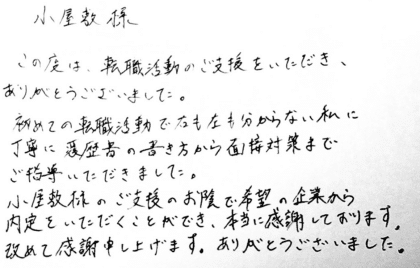 小屋敷様
この度は、転職活動のご支援をいただき、
ありがとうございました。
初めての転職活動で右も左も分からない私に
丁寧に履歴書の書き方から面接対策まで
ご指導いただきました。
小屋敷様のご支援のお陰で希望の企業から
内定をいただくことができ、本当に感謝しております。
改めて感謝申し上げます。ありがとうございました。